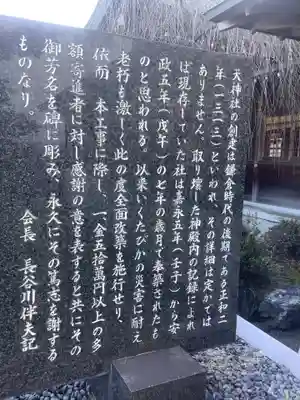 天神社の創建は鎌倉時代の後期である正和二
年(一三一三)といわれ、その詳細は定かでは
ありません。取り壊した神殿内の記録によれ
ば現存していた社は嘉永五年(壬子)から安
政五年(戊午)の七年の歳月で奉築されたも
のと思われる。以来いくたびかの災害に耐え
老朽も激しく此の度全面改築を施行せり。
依而、本工事に際し、一、金五拾萬円以上の多
額寄進者に対し感謝の意を表すると共にその
御芳名を碑に彫み、永久にその篤志を謝する
ものなり。
会長 長谷川伴夫記